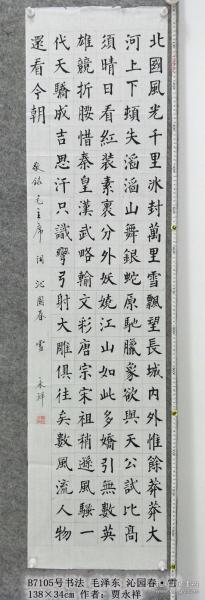 北國風光千里冰封萬里雪飄望長城内外惟餘莽莽大
河上下頓失滔滔山舞銀蛇原馳臘象欲與天公試比高
須晴日看紅裝素裹分外妖嬈江山如此多嬌引無數英
雄競折腰惜秦皇漢武略輸文彩唐宗宋祖稍遜風騷一
代天驕成吉思汗只識彎弓射大雕俱往矣數風流人物
還看今朝
敬錄毛主席詞沁園春雪 永祥
B7105号书法 毛泽东 沁园春·雪
138×34cm 作者：贾永祥